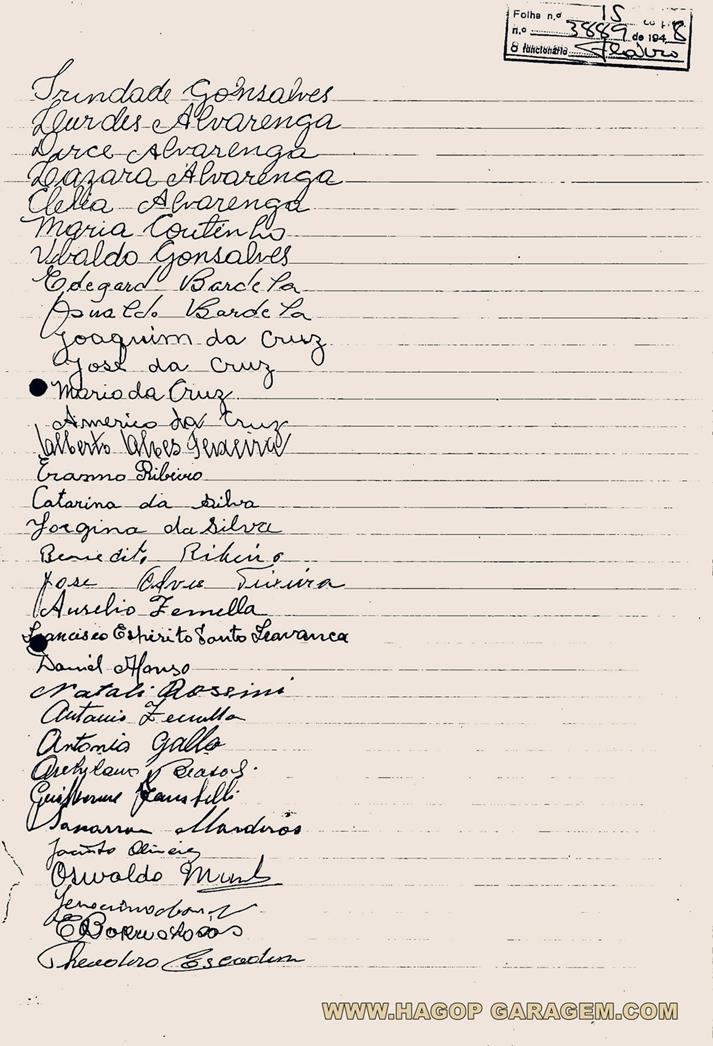 Folha n.º 15
n.º 3889 de 1948
o funcionário
Trindade Gonsalves
Lourdes Alvarenga
Dirce Alvarenga
Lazara Alvarenga
Clelia Alvarenga
Maria Coutinho
Uvaldo Gonsalves
Edegard Bardela
Osvaldo Bardela
Joaquim da Cruz
José da Cruz
Mario da Cruz
Americo da Cruz
Alberto Alves Teixeira
Erasmo Ribeiro
Catarina da Silva
Jorgina da Silva
Benedito Ribeiro
Jose Alves Teixeira
Aurelio Zemella
Francisco Espirito Santo Travanca
Daniel Afonso
Natali Rossini
Antonio Zemella
Antonio Gallo
Guilherme
Mardiros
Jacinto Oliveira
Oswaldo
Theodoro
WWW.HAGOP GARAGEM.COM